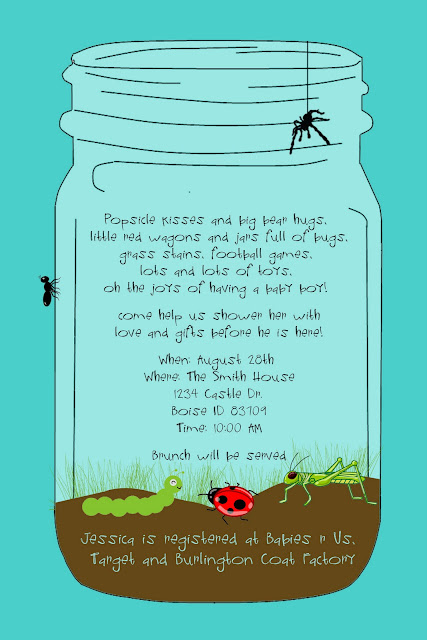 Popsicle kisses and big bear hugs,
little red wagons and jars full of bugs,
grass stains, football games,
lots and lots of toys,
oh the joys of having a baby boy!
come help us shower her with
love and gifts before he is here!
When: August 28th
Where: The Smith House
1234 Castle Dr.
Boise ID 83709
Time: 10:00 AM
Brunch will be served
Jessica is registered at Babies r Us,
Target and Burlington Coat Factory